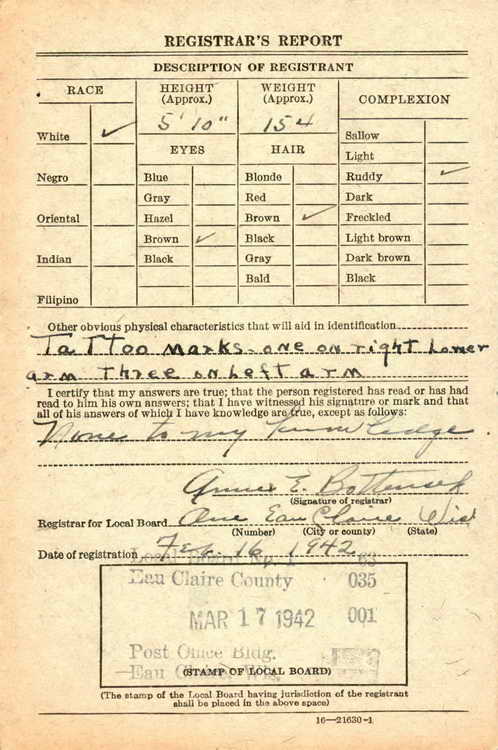 REGISTRAR'S REPORT
DESCRIPTION OF REGISTRANT
RACE
HEIGHT (Approx.)
WEIGHT (Approx.)
COMPLEXION
5' 10"
154
White ✓
EYES
HAIR
Sallow
Light
Negro
Blue
Blonde
Ruddy ✓
Gray
Red
Dark
Oriental
Hazel
Brown ✓
Freckled
Brown ✓
Black
Light brown
Indian
Black
Gray
Dark brown
Bald
Black
Filipino
Other obvious physical characteristics that will aid in identification
TaTToo marks-one on right Lower
arm Three on Left arm
I certify that my answers are true; that the person registered has read or has had
read to him his own answers; that I have witnessed his signature or mark and that
all of his answers of which I have knowledge are true, except as follows:
None to my knowledge
E.
(Signature of registrar)
Registrar for Local Board One Eau Claire Wis
(Number) (City or county) (State)
Date of registration Feb. 16 1942
Local Board No. 1 63
Eau Claire County 035
MAR 17 1942 001
Post Office Bldg.
Eau Claire, Wis.
(STAMP OF LOCAL BOARD)
(The stamp of the Local Board having jurisdiction of the registrant
shall be placed in the above space)
16—21630-1